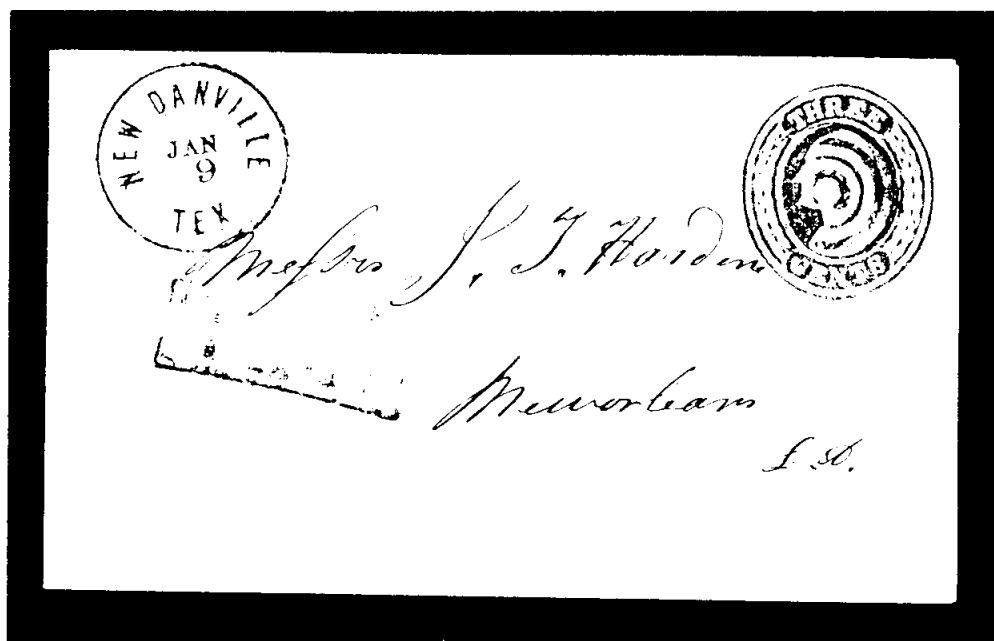 NEW DANVILLE
JAN
9
TEX
THREE
CENTS
Messrs S. T. Harden
Neworleans